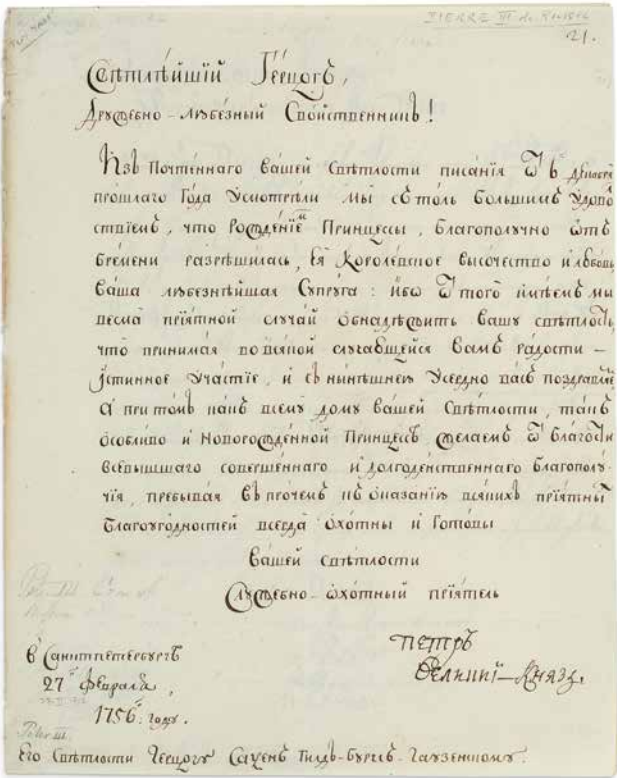 PIERRE III de RUSSIE
21.
Свѣтлѣйшїй Герцогъ,
Дружебно-любезный Свойственникъ!
Изъ Почтеннаго вашей Свѣтлости писанїя ѿ 6 декабря
прошлаго Года Усмотрѣли Мы съ толь Большимъ Удово
ствїемъ, что Рожденїемъ Принцессы, Благополучно ѿтъ
бремени разрѣшилась, Ея Королевское высочество и любовь
ваша любезнѣйшая Супруга: ибо ѿ того имѣемъ мы
весма прїятной случай ѡбнадѣжить вашу свѣтлость,
что принимая во всякой случавшейся вамъ радости –
Истинное Участїе, и съ нынѣшнею Усердно васъ поздравляе
А притомъ какъ всему дому вашей Свѣтлости, такъ
ѡсобливо и Новорожденной Принцессѣ желаемъ ѿ Благости
всевышшаго совершеннаго и долгоденственнаго благополу-
чїя, пребывая въ прочемъ къ ѡказанїю всякихъ прїятны
Благоугодностей всегда ѡхотны и Готовы
вашей свѣтлости
Служебно-ѡхотный прїятель
Петръ
Великїй-Князь.
в Санктпетербургѣ
27 Февраля,
1756. году.
Peter III.
Его Свѣтлости Герцогу Саксенъ Гилдъ-бургъ-гаузенскому.